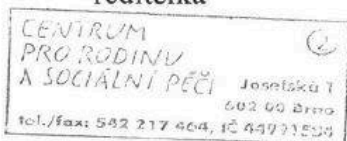 ředitelka
CENTRUM
PRO RODINU
A SOCIÁLNÍ PÉČI
Josefská 1
602 00 Brno
tel./fax: 542 217 464, IČ